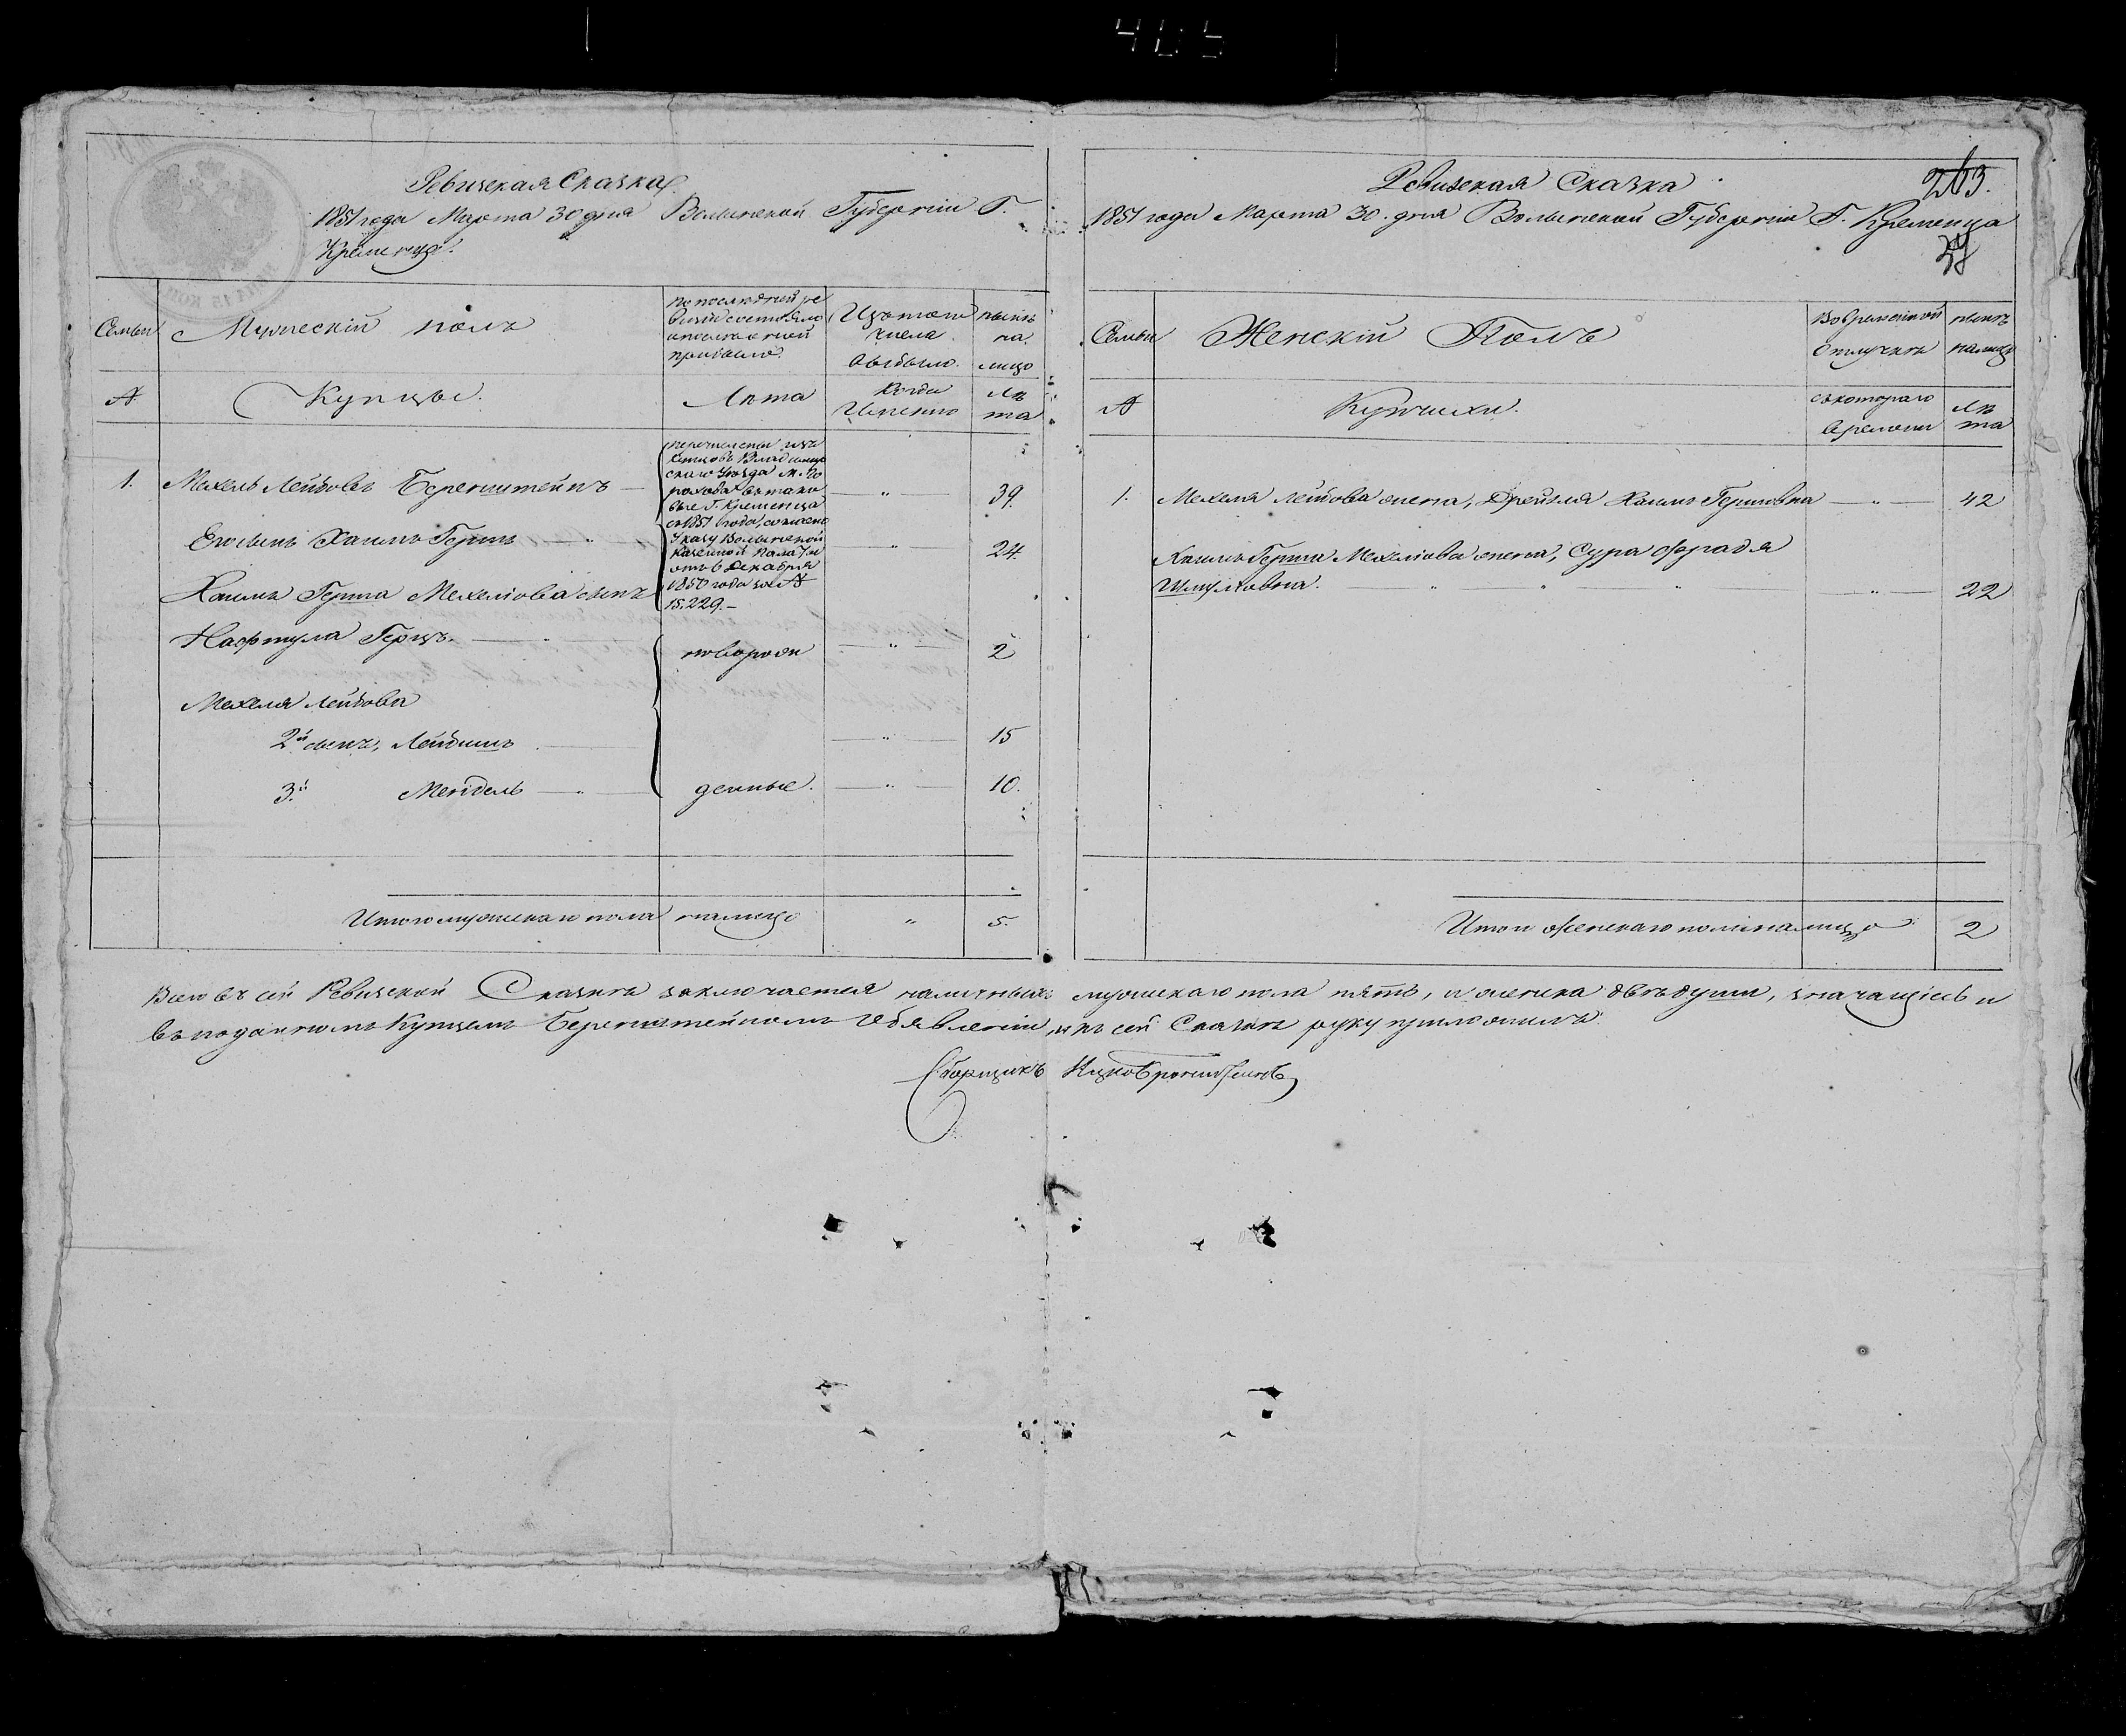 Ревизская Сказка
1851 года Марта 30 дня Волынской Губерніи Г.
Кременца.
Семьи
Мужескій полъ
По последней ре
визіи состояло
и после оной
прибыло.
Изъ того
числа
выбыло.
нынѣ
на
лицо
№
Купцы.
Лѣта
Когда
Именно
Лѣ
та
1.
Мехель Лейбовъ Беренштейнъ
перечислены изъ
купцовъ Владимир
скаго Уезда м. Го
рохова въ тако
вые Г. Кременца
съ 1851 года, согласно
Указу Волынской
Казенной Палаты
отъ 6 Декабря
1850 года за №
15.229.
39.
Его сынъ Хаимъ Гершъ
24.
Хаимъ Герша Мехеліова сынъ
Нафтула Герцъ.
новорож
2
Мехеля Лейбова
2й сынъ, Лейбишъ
15
3.й Мендель
денные.
10.
Итого мужескаго пола налицо
5.
263.
Ревизская Сказка
1851 года Марта 30. дня Волынской Губерніи Г. Кременца
Семьи
Женскій Полъ
Во временной
отлучкѣ
нынѣ
налицо
№
Купчихи.
съ котораго
времени
Лѣ
та
1.
Мехеля Лейбова жена, Дрейзля Хаимъ Гершовна
42
Хаимъ Герша Мехеліова жена, Сура Фрадя
Шмулёвна.
22
Итого женскаго пола налицо
2
Всего въ сей Ревизской Сказкѣ заключается наличныхъ мужескаго пола пять, и женска двѣ души, значащіесь и
въ поданномъ Купцемъ Беренштейномъ Объявленіи, и къ сей Сказкѣ руку приложилъ.
Сборщикъ